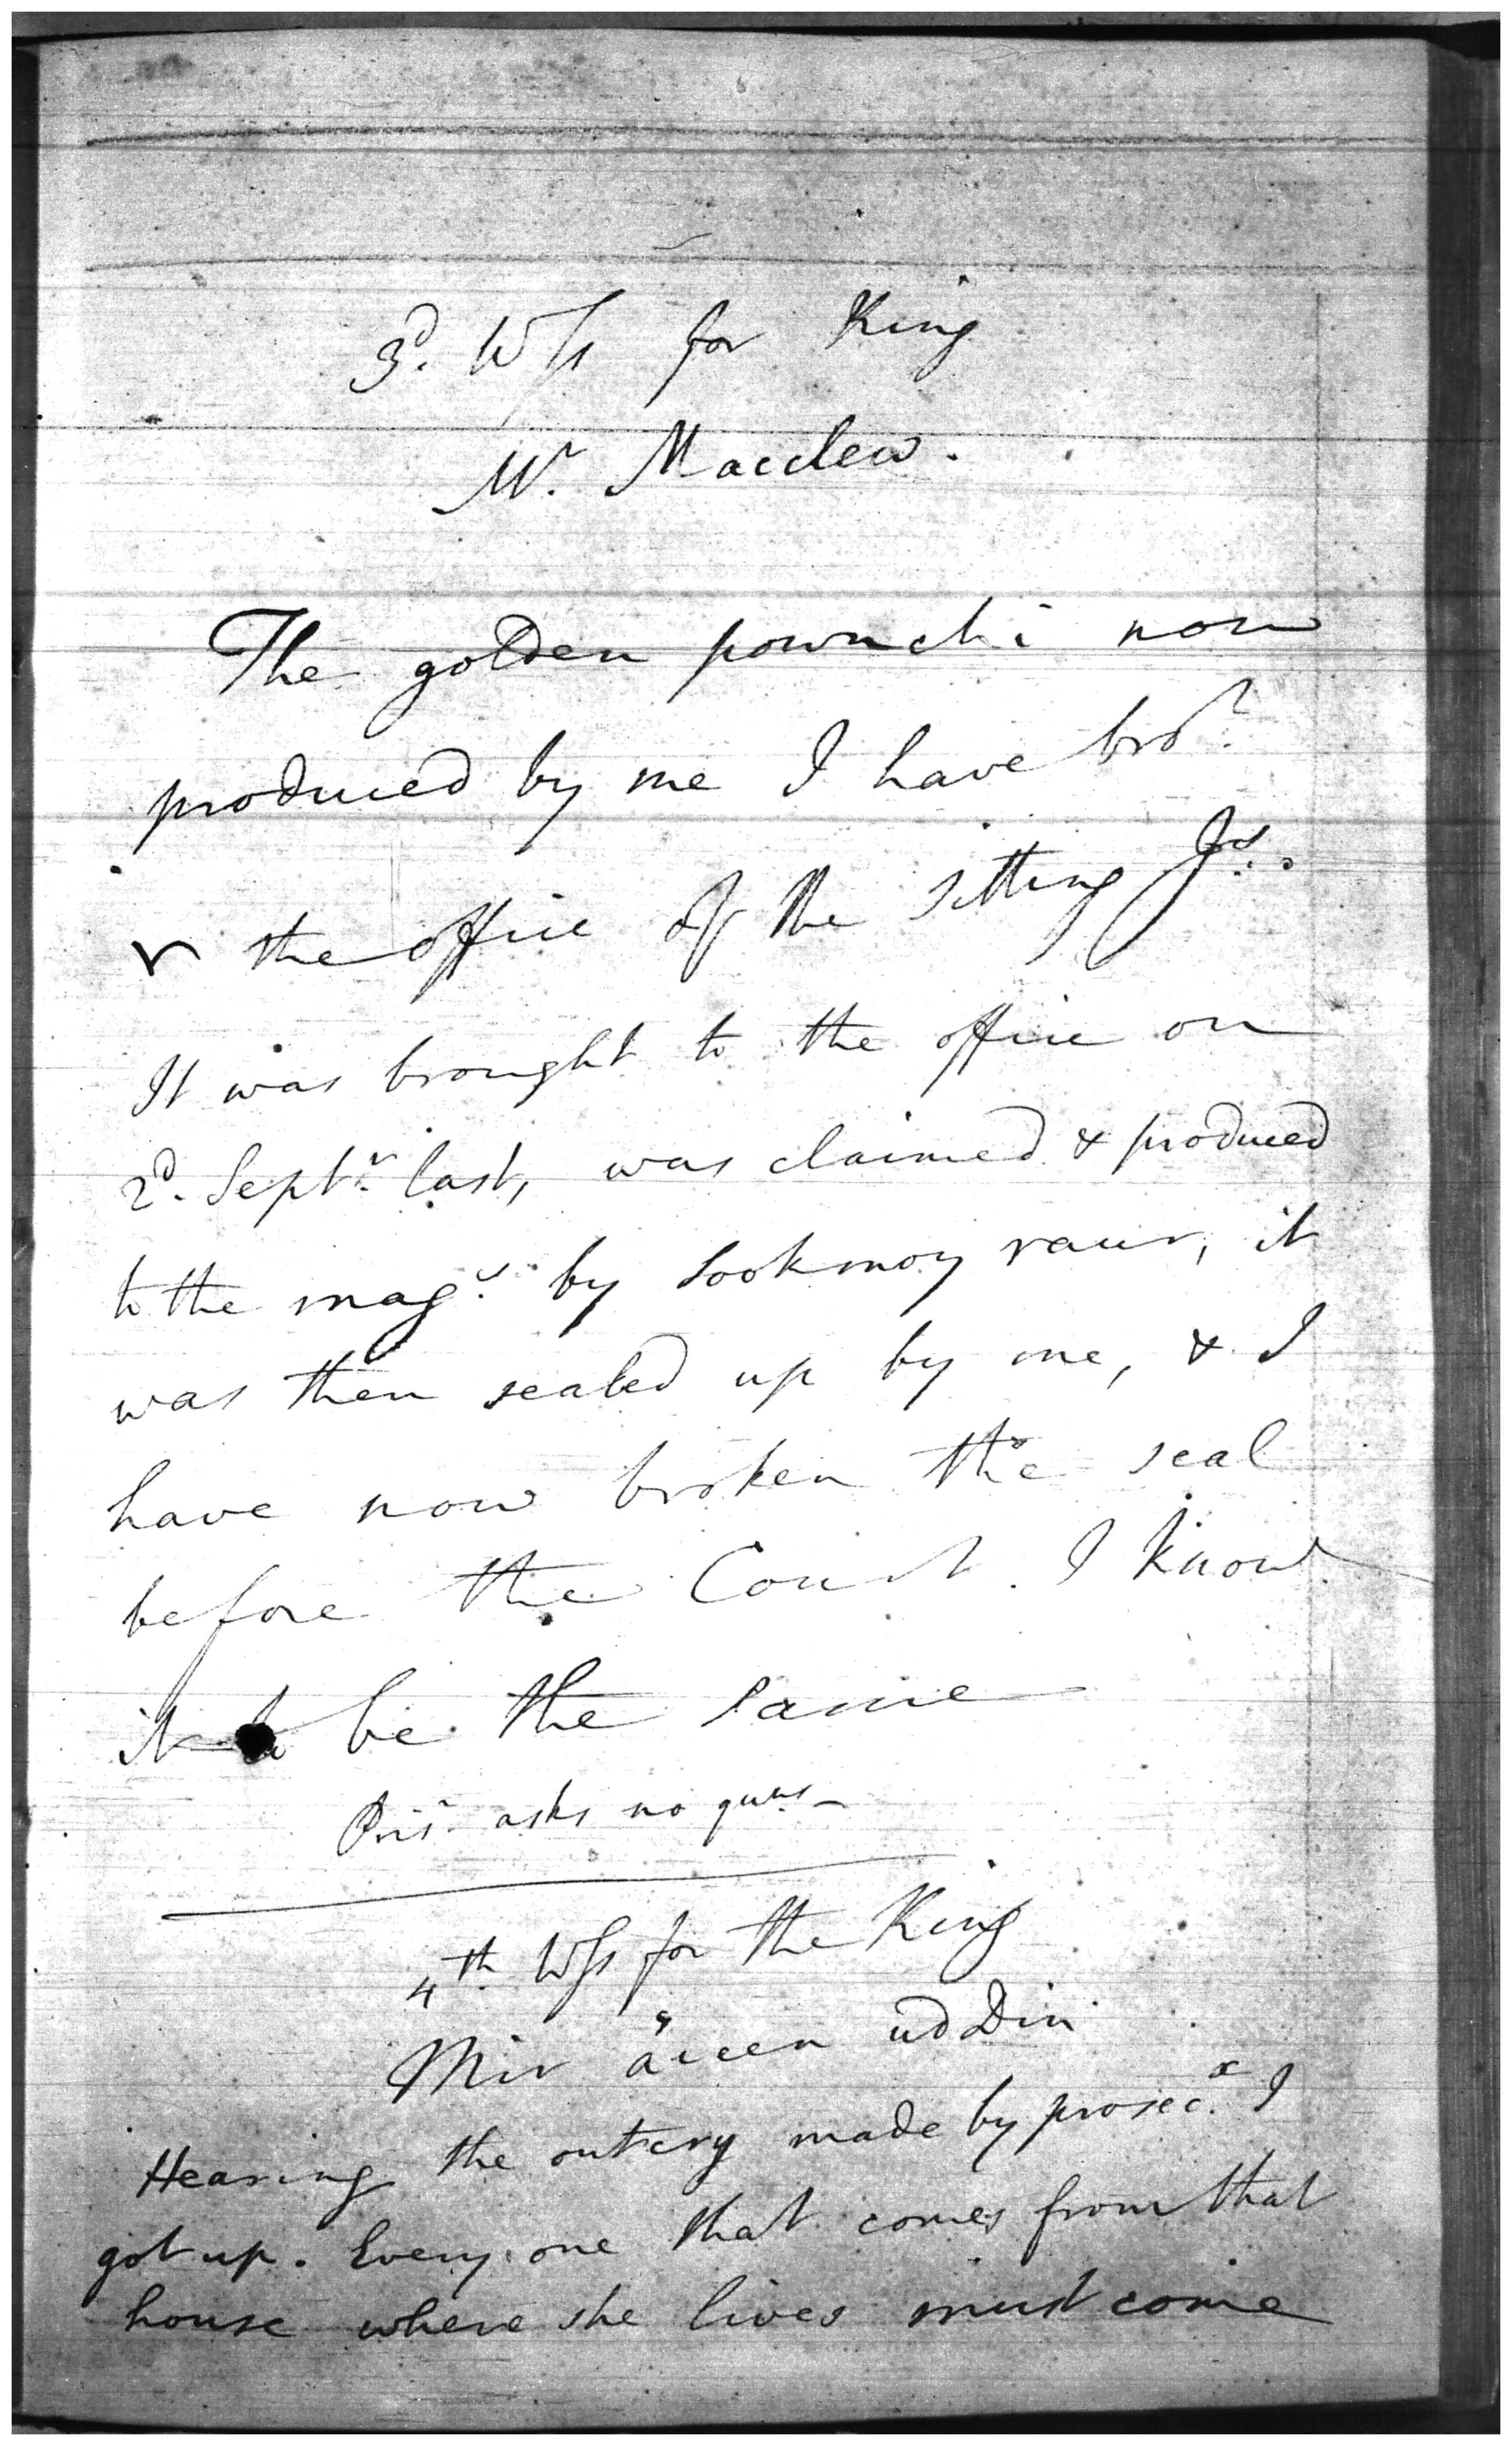 3d. Wss for King
Mr. Macclew.
The golden pownchi now
produced by me I have brot.
the office of the sitting Jus.
It was brought to the office on
2d. Septr. last, was claimed & produced
to the mags. by Sookmoy raur, it
was then sealed up by me, & I
have now broken the seal
before the Court. I know
it to be the same
Prisr. asks no quns -
4th Wss for the King
Mir ud Din
Hearing the outcry made by prosecx. I
got up. Every one that comes from that
house where she lives must come